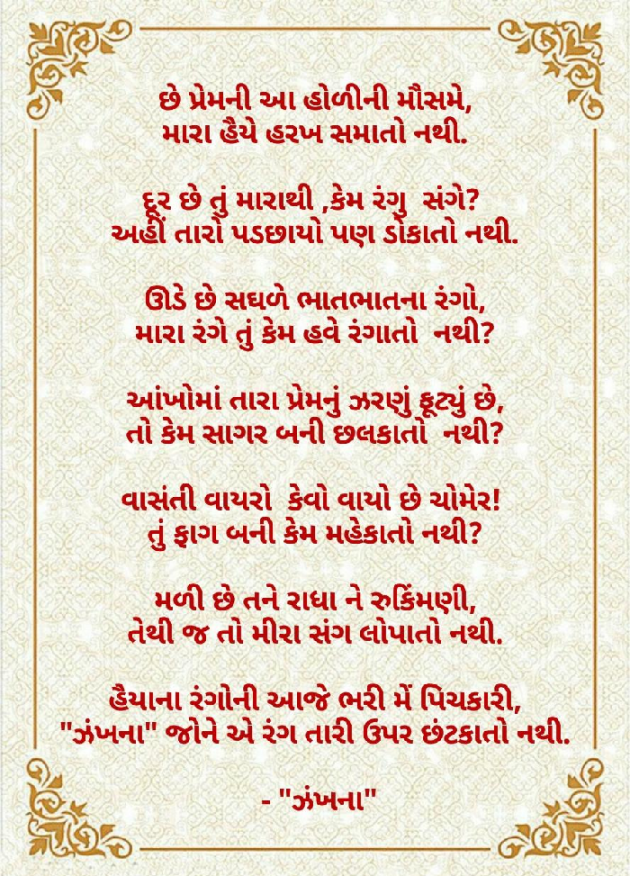 છે પ્રેમની આ હોળીની મૌસમે,
મારા હૈયે હરખ સમાતો નથી.
દૂર છે તું મારાથી ,કેમ રંગુ સંગે?
અહીં તારો પડછાયો પણ ડોકાતો નથી.
ઊડે છે સઘળે ભાતભાતના રંગો,
મારા રંગે તું કેમ હવે રંગાતો નથી?
આંખોમાં તારા પ્રેમનું ઝરણું ફૂટ્યું છે,
તો કેમ સાગર બની છલકાતો નથી?
વાસંતી વાયરો કેવો વાયો છે ચોમેર!
તું ફાગ બની કેમ મહેકાતો નથી?
મળી છે તને રાધા ને રુકિંમણી,
તેથી જ તો મીરા સંગ લોપાતો નથી.
હૈયાના રંગોની આજે ભરી મેં પિચકારી,
"ઝંખના" જોને એ રંગ તારી ઉપર છંટકાતો નથી.
- "ઝંખના"